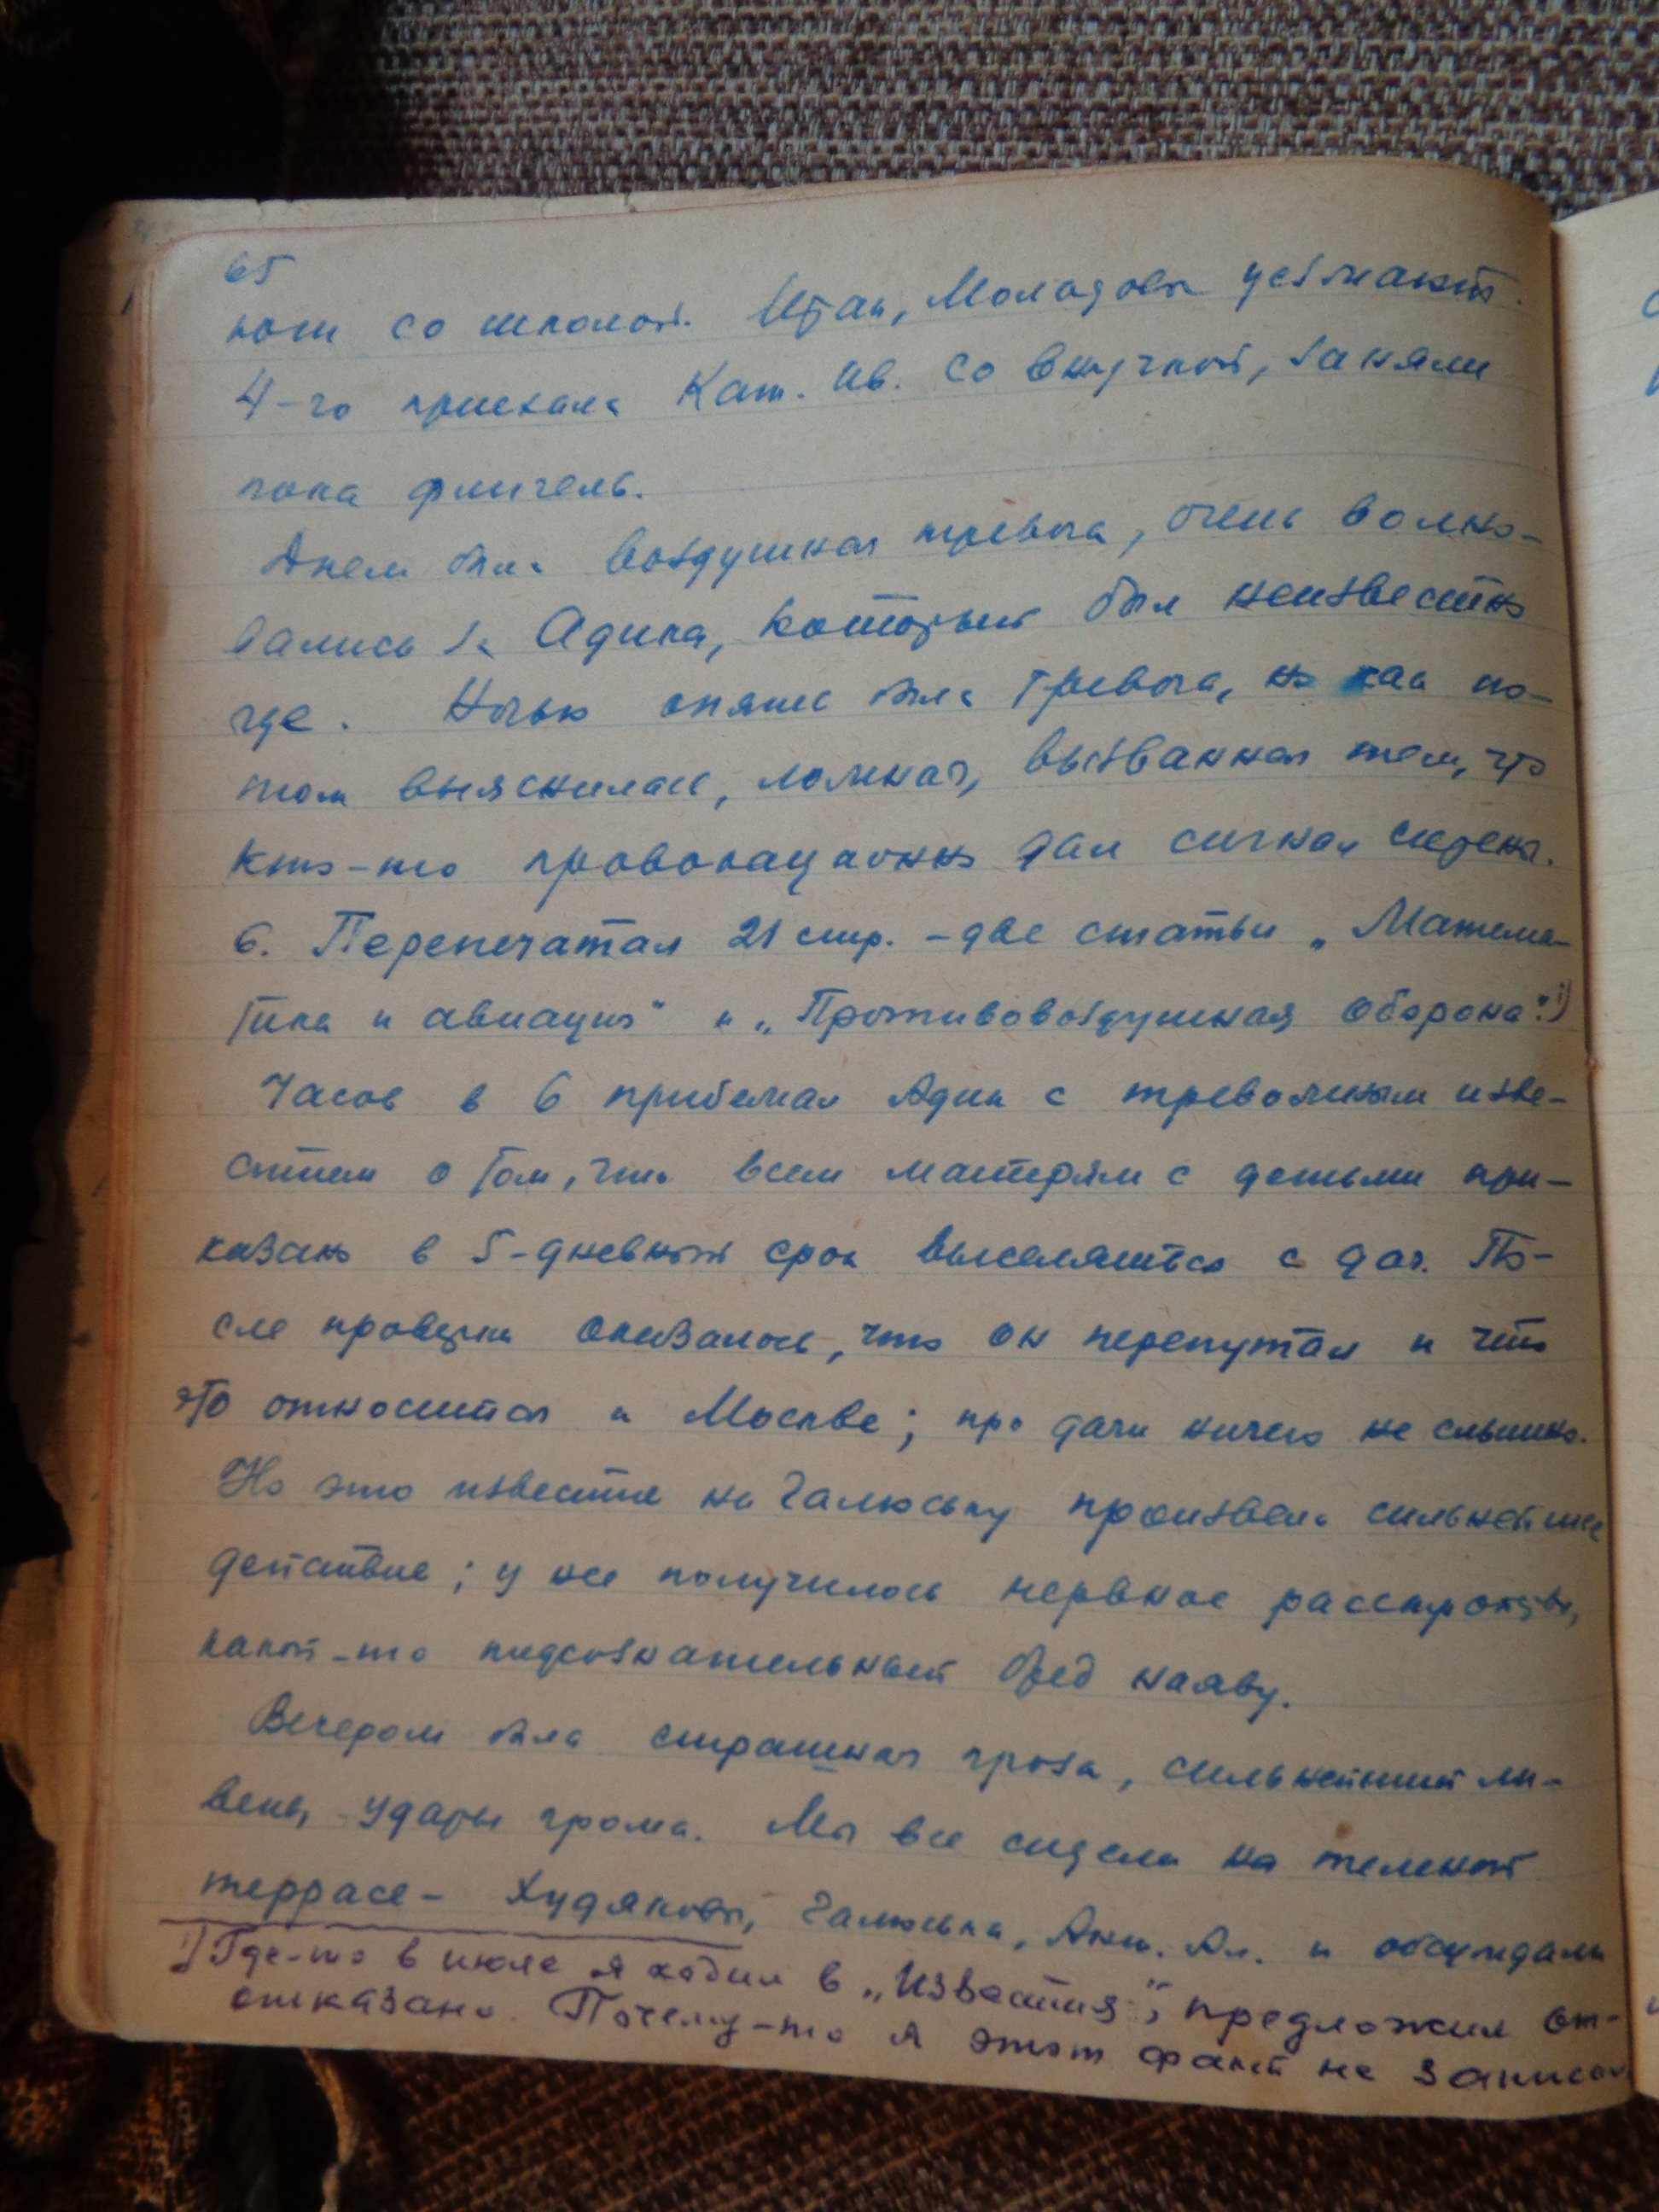 65
со школой. Итак, Молодовы уезжают.
4-го приехала Кат. Ив. со внучкой, заняли
пока флигель.
Днем была воздушная тревога, очень волно-
вались за Адика, который был неизвестно
где. Ночью опять была тревога, но как по-
том выяснилось, ложная, вызванная тем, что
кто-то провокационно дал сигнал сирены.
6. Перепечатал 21 стр. – две статьи „Матема-
тика и авиация" и „Противовоздушная оборона".¹)
Часов в 6 прибежал Адик с тревожным изве-
стием о том, что всем матерям с детьми при-
казано в 5-дневный срок выселяться с дач. По-
сле проверки оказалось, что он перепутал и что
это относится к Москве; про дачи ничего не слышно.
Но это известие на Галюську произвело сильнейшее
действие; у нее получилось нервное расстройство,
какой-то подсознательный бред наяву.
Вечером была страшная гроза, сильнейший ли-
вень, удары грома. Мы все сидели на темной
террасе – Худяковы, Галюська, Анн. Ал. и обсуждали
¹) Где-то в июле я ходил в „Известия", предложил от-
отказано. Почему-то я этот факт не записал